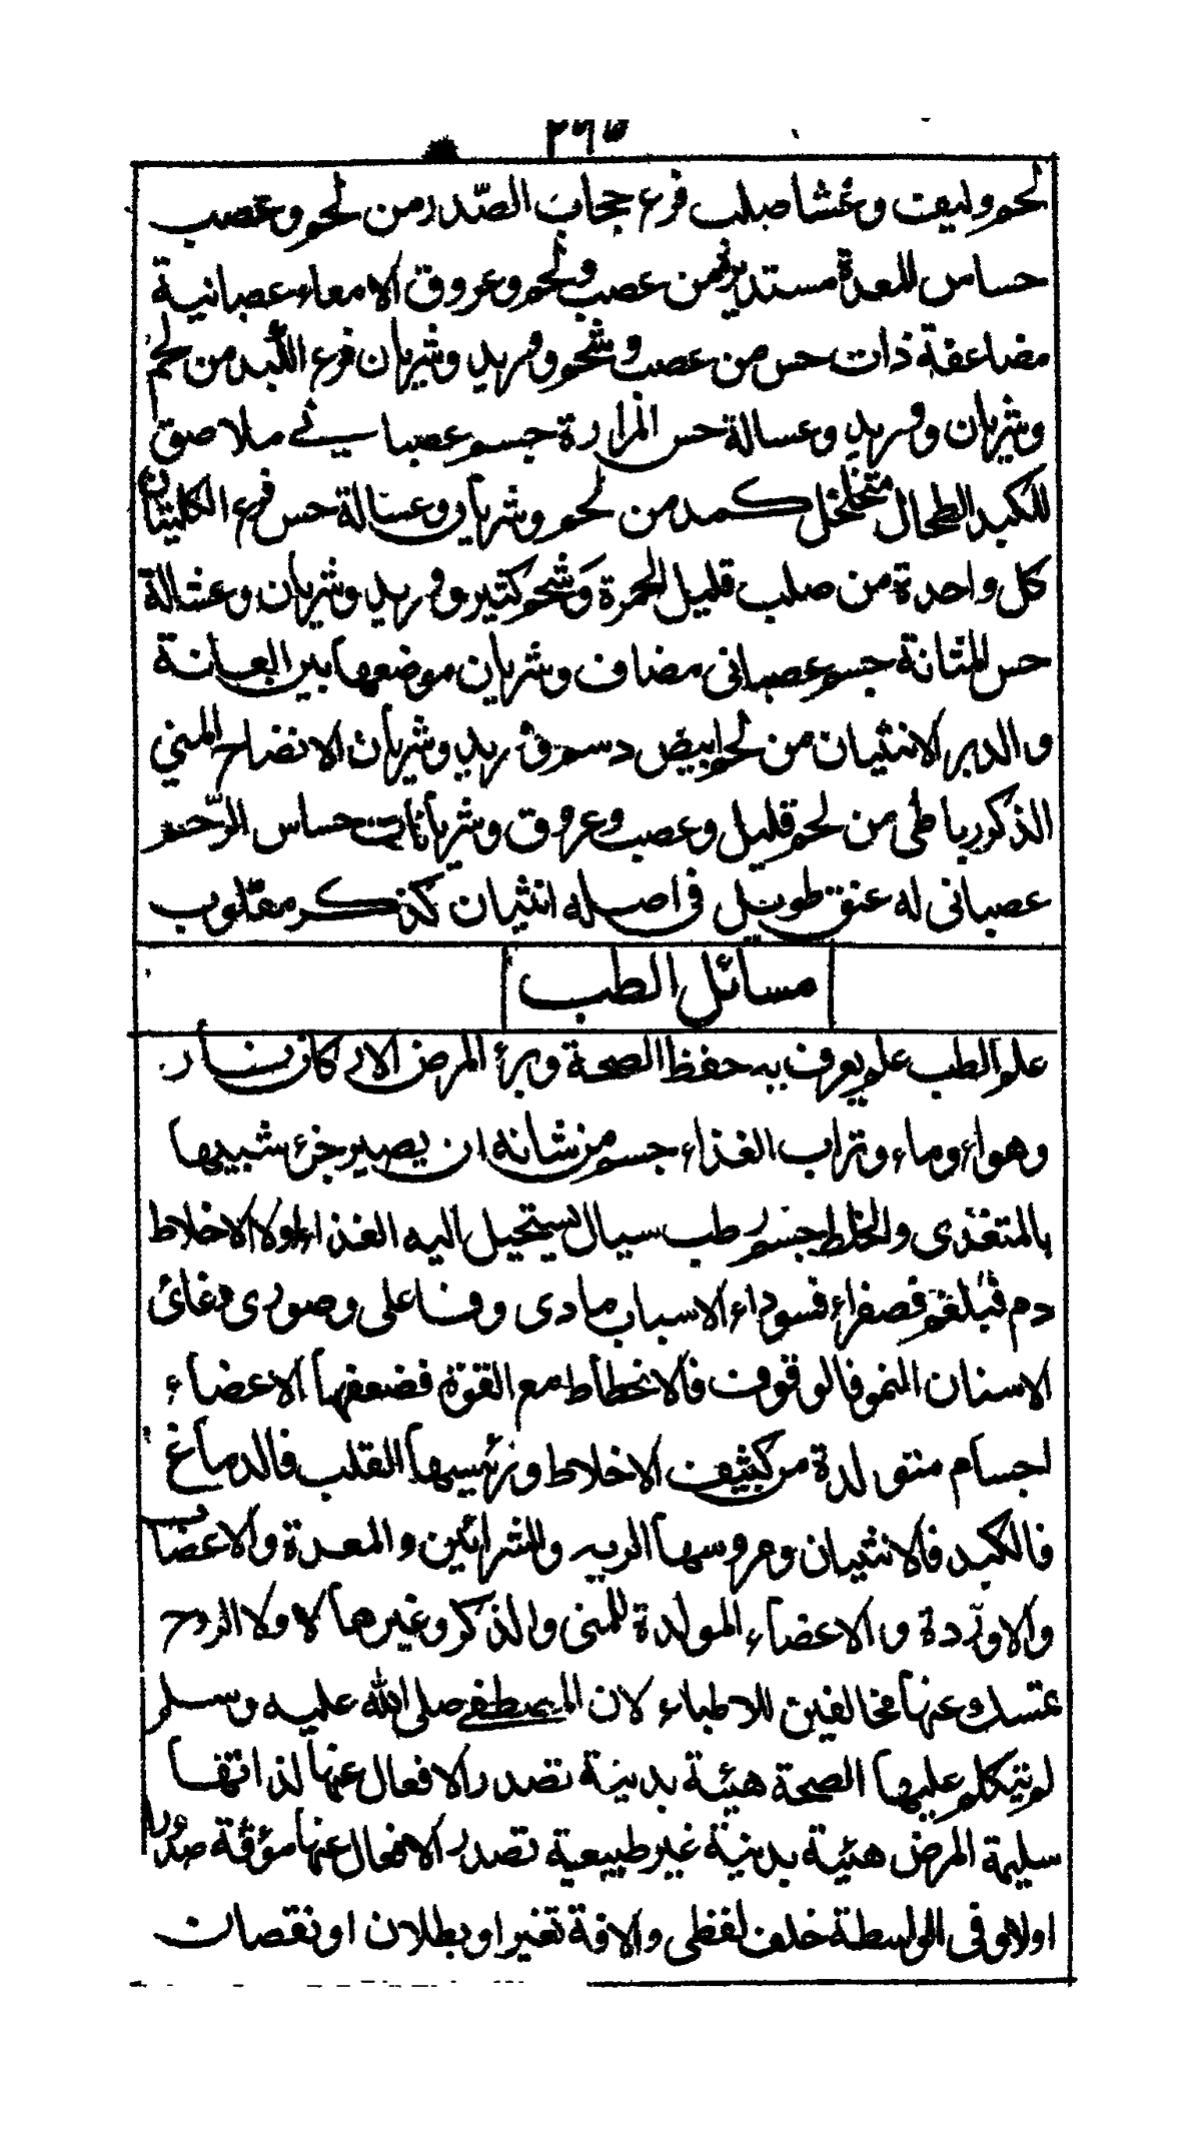 ٢٦٥
لحم وليف وغشا صلب فرع حجاب الصّدر من لحم وعصب
حساس للمعدة مستديرة من عصب ولحم وعروق الامعاء عصبانية
مضاعفة ذات حس من عصب وشحم ووريد وشريان فرع الكبد من لحم
وشريان ووريد وعسالة حس المرارة جسم عصباني ملاصق
للكبد الطحال متخلخل كمد من لحم وشريان وعسالة حس فرع الكليتان
كل واحدة من صلب قليل الحمرة وشحم كثير ووريد وشريان وعشالة
حس المثانة جسم عصبانى مضاف وشريان موضعها بين العانة
والدبر الانثيان من لحم ابيض دسم ووريد وشريان الانضاج المني
الذكر رباطى من لحم قليل وعصب وعروق وشريانات حساس الرّحم
عصبانى له عنق طويل فى اصله انثيان كذكر مقلوب
مسائل الطب
علم الطب علم يعرف به حفظ الصحة وبرئ المرض الاركان نار
وهواء وماء وتراب الغذاء جسم من شانه ان يصير جزء شبيها
بالمتغذى والخلط جسم رطب سيال يستحيل اليه الغذاء اولا الاخلاط
دم فبلغم فصفراء فسوداء الاسباب مادى وفاعلى وصورى وغائى
الاسنان النمو فالوقوف فالانحطاط مع القوة فضعفها الاعضاء
اجسام متولدة من كثيف الاخلاط ورئيسها القلب فالدماغ
فالكبد فالانثيان ومروسها الريه والشرائين والمعدة والاعصاب
والاوردة والاعضاء المولدة للمنى والذكر وغيرها لا ولا الروح
نمسك عنها مخالفين للاطباء لان المصطفى صلى الله عليه وسلم
لم يتكلم عليها الصحة هيئة بدنية تصدر الافعال عنها لذاتها
سليمة المرض هيئة بدنية غير طبيعية تصدر الافعال عنها مؤفة صدورا
اولا وفى الواسطة خلف لفظى والافة تغير او بطلان او نقصان